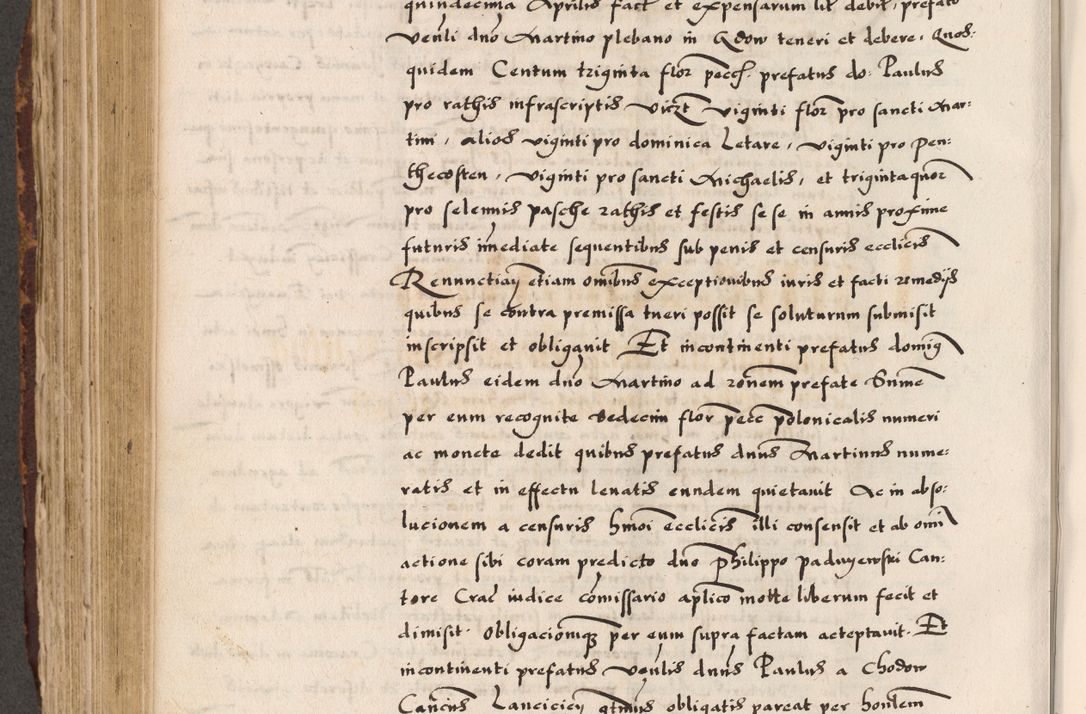 quindecima Aprilis fact et expensarum lit debit, prefato
venli dno Martino plebano in Gdow teneri et debere, Quos
quidem Centum triginta flor pecc. prefatus do: Paulus
pro rathis infrascriptis vizt viginti flor pro sancti Mar:
tini, alios viginti pro dominica Letare, viginti pro Pen:
thecosten, viginti pro sancti Michaelis, et triginta
pro solennis pasche rathis et festis se se in annis proxime
futuris imediate sequentibus sub penis et censuris ecclicis
Renunctian etiam omibus exceptionibus iuris et facti remedys
quibus se contra premissa tueri possit se soluturum submisit
inscripsit et obligauit Et incontinenti prefatus
Paulus eidem dno Martino ad ronem prefate Sume
per eum recognite sedecim flor pecc polonicalis numeri
ac monete dedit quibus prefatus dnus Martinus nume:
ratis et in effectu leuatis eundem quietauit Ac in abso:
lucionem a censuris hmoi ecclicis illi consensit et ab omi
actione sibi coram predicto dno Philippo paduyewski Can:
tore Crac iudice comissario aplico motte liberum fecit et
dimisit. Obligacionemq per eum supra factam acteptauit. Et
incontinenti prefatus venlis dnus Paulus a Chodow
Cancus Lancicien obligatis pareat per